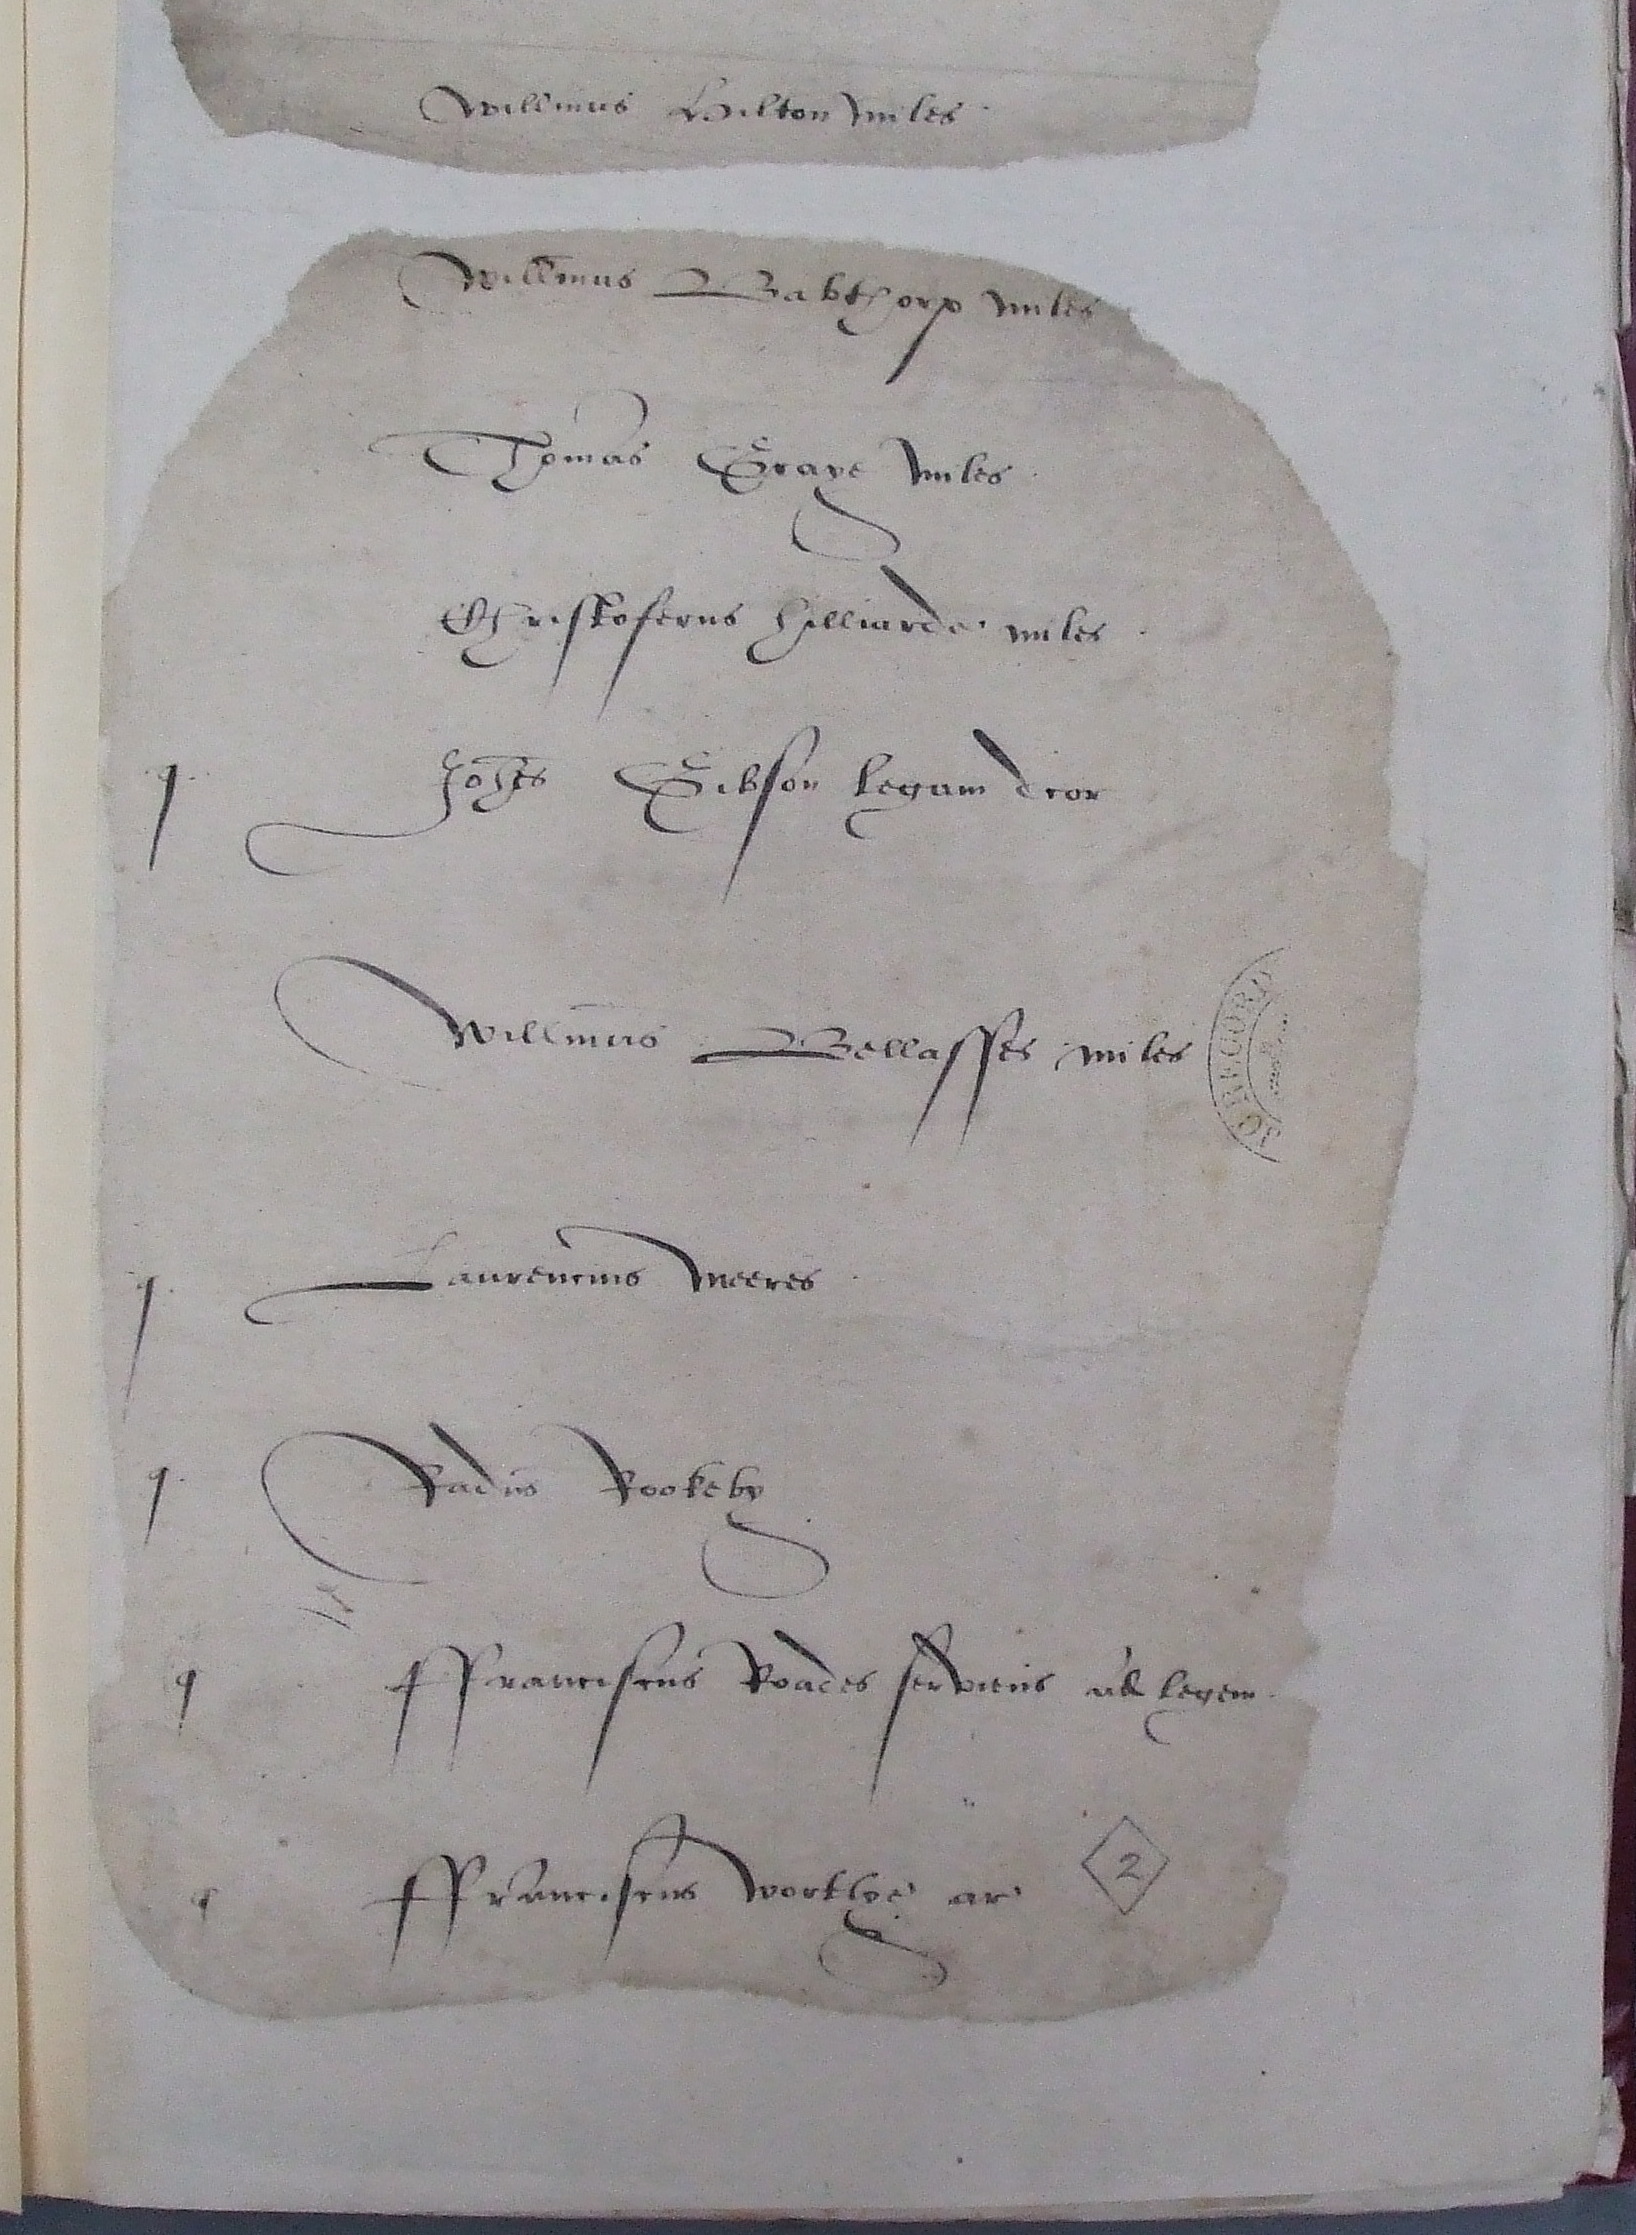 Willmus Hilton miles
Willmus Babthorp miles
Thomas Graye miles
Christoferus Hilliarde miles
q Johes Gibson legum dcor
Willmus Bellasses miles
RECORD
q Laurencius Meeres
q Radus Rookeby
q ffranciscus Roades serviens ad legem
q ffranciscus Wortlye ar
2